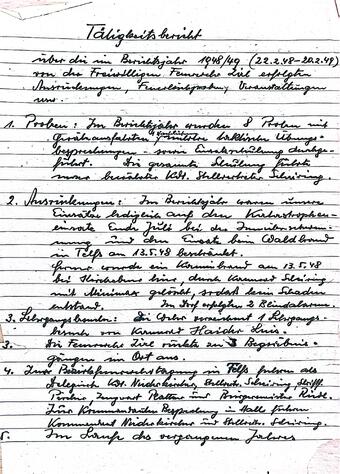 Tätigkeitsbericht
über die im Berichtsjahr 1948/49 (22.2.48–20.2.49)
von der Freiwilligen Feuerwehr Zirl erfolgten
Ausrückungen, Feuerlöschproben, Veranstaltungen
usw.
1. Proben: Im Berichtsjahr wurden 8 Proben mit
Geräteausfahrten, taktische Übungs-
besprechungen sowie Einzelschulung durchge-
führt. Die gesamte Schulung führte
unser bewährter Kdt. Stellvertreter Scheiring.
2. Ausrückungen: Im Berichtsjahr waren unsere
Einsätze lediglich auf den Katastrophen-
einsatz Ende Juli bei der Innüberschwem-
mung und den Einsatz beim Waldbrand
in Telfs am 13.5.48 beschränkt.
Ferner wurde ein Kaminbrand am 13.5.48
bei durch Kamerad Scheiring
mit Minimax gelöscht, sodaß kein Schaden
entstand. Im Dorf erfolgten 2 Blindalarme.
3. Lehrgangsbesuche: Die Wehr verzeichnet 1 Lehrgangs-
besuch, von Kamerad Haider Luis.
3. Die Feuerwehr Zirl rückte zu 3 Begräbnis-
gängen im Ort aus.
4. Zum Bezirksfeuerwehrtag in Telfs fuhren als
Delegierte Kdt. Neukirchner, Stellvertr. Scheiring, Schriftf.
Zeugwart Plattner und Bürgermeister
Zur Kommandanten Besprechung in Hall fuhren
Kommandant Neukirchner und Stellvertr. Scheiring.
5. Im Laufe des vergangenen Jahres